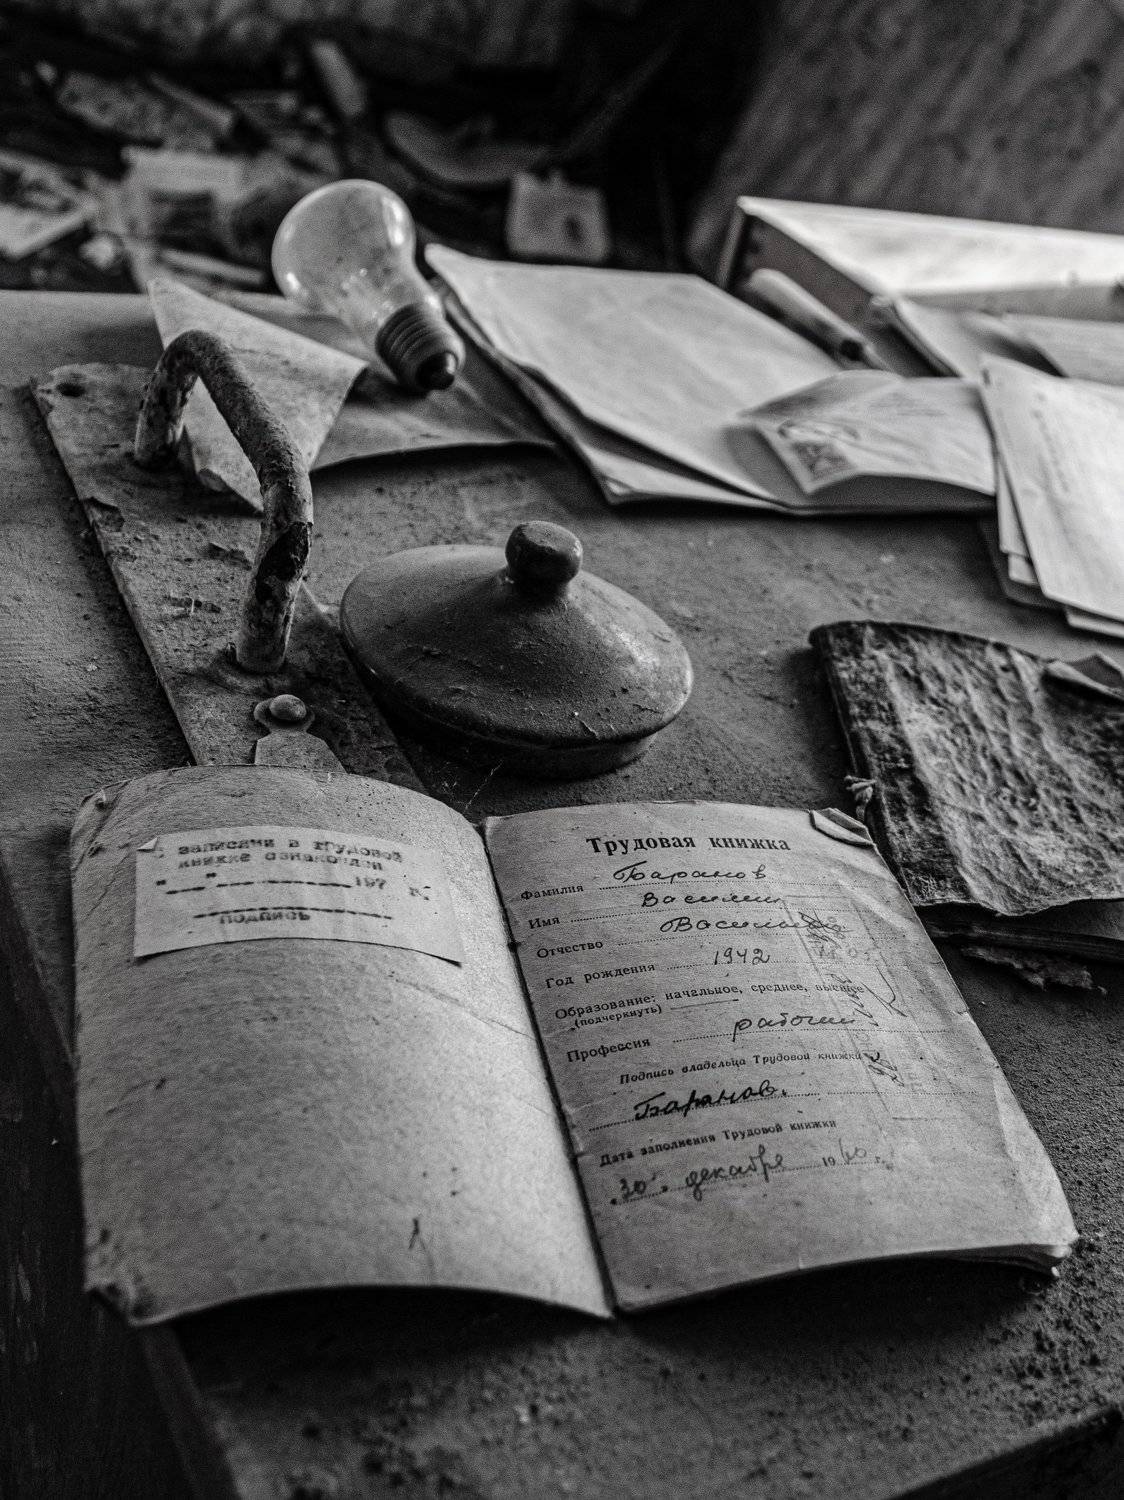 С записями в трудовой
книжке ознакомлен
"___"____________197 г.
подпись
Трудовая книжка
Фамилия Баранов
Имя Василий
Отчество Васильевич
Год рождения 1942
Образование: начальное, среднее, высшее
(подчеркнуть)
Профессия рабочий
Подпись владельца Трудовой книжки
Баранов.
Дата заполнения Трудовой книжки
"30" декабря 1960 г.